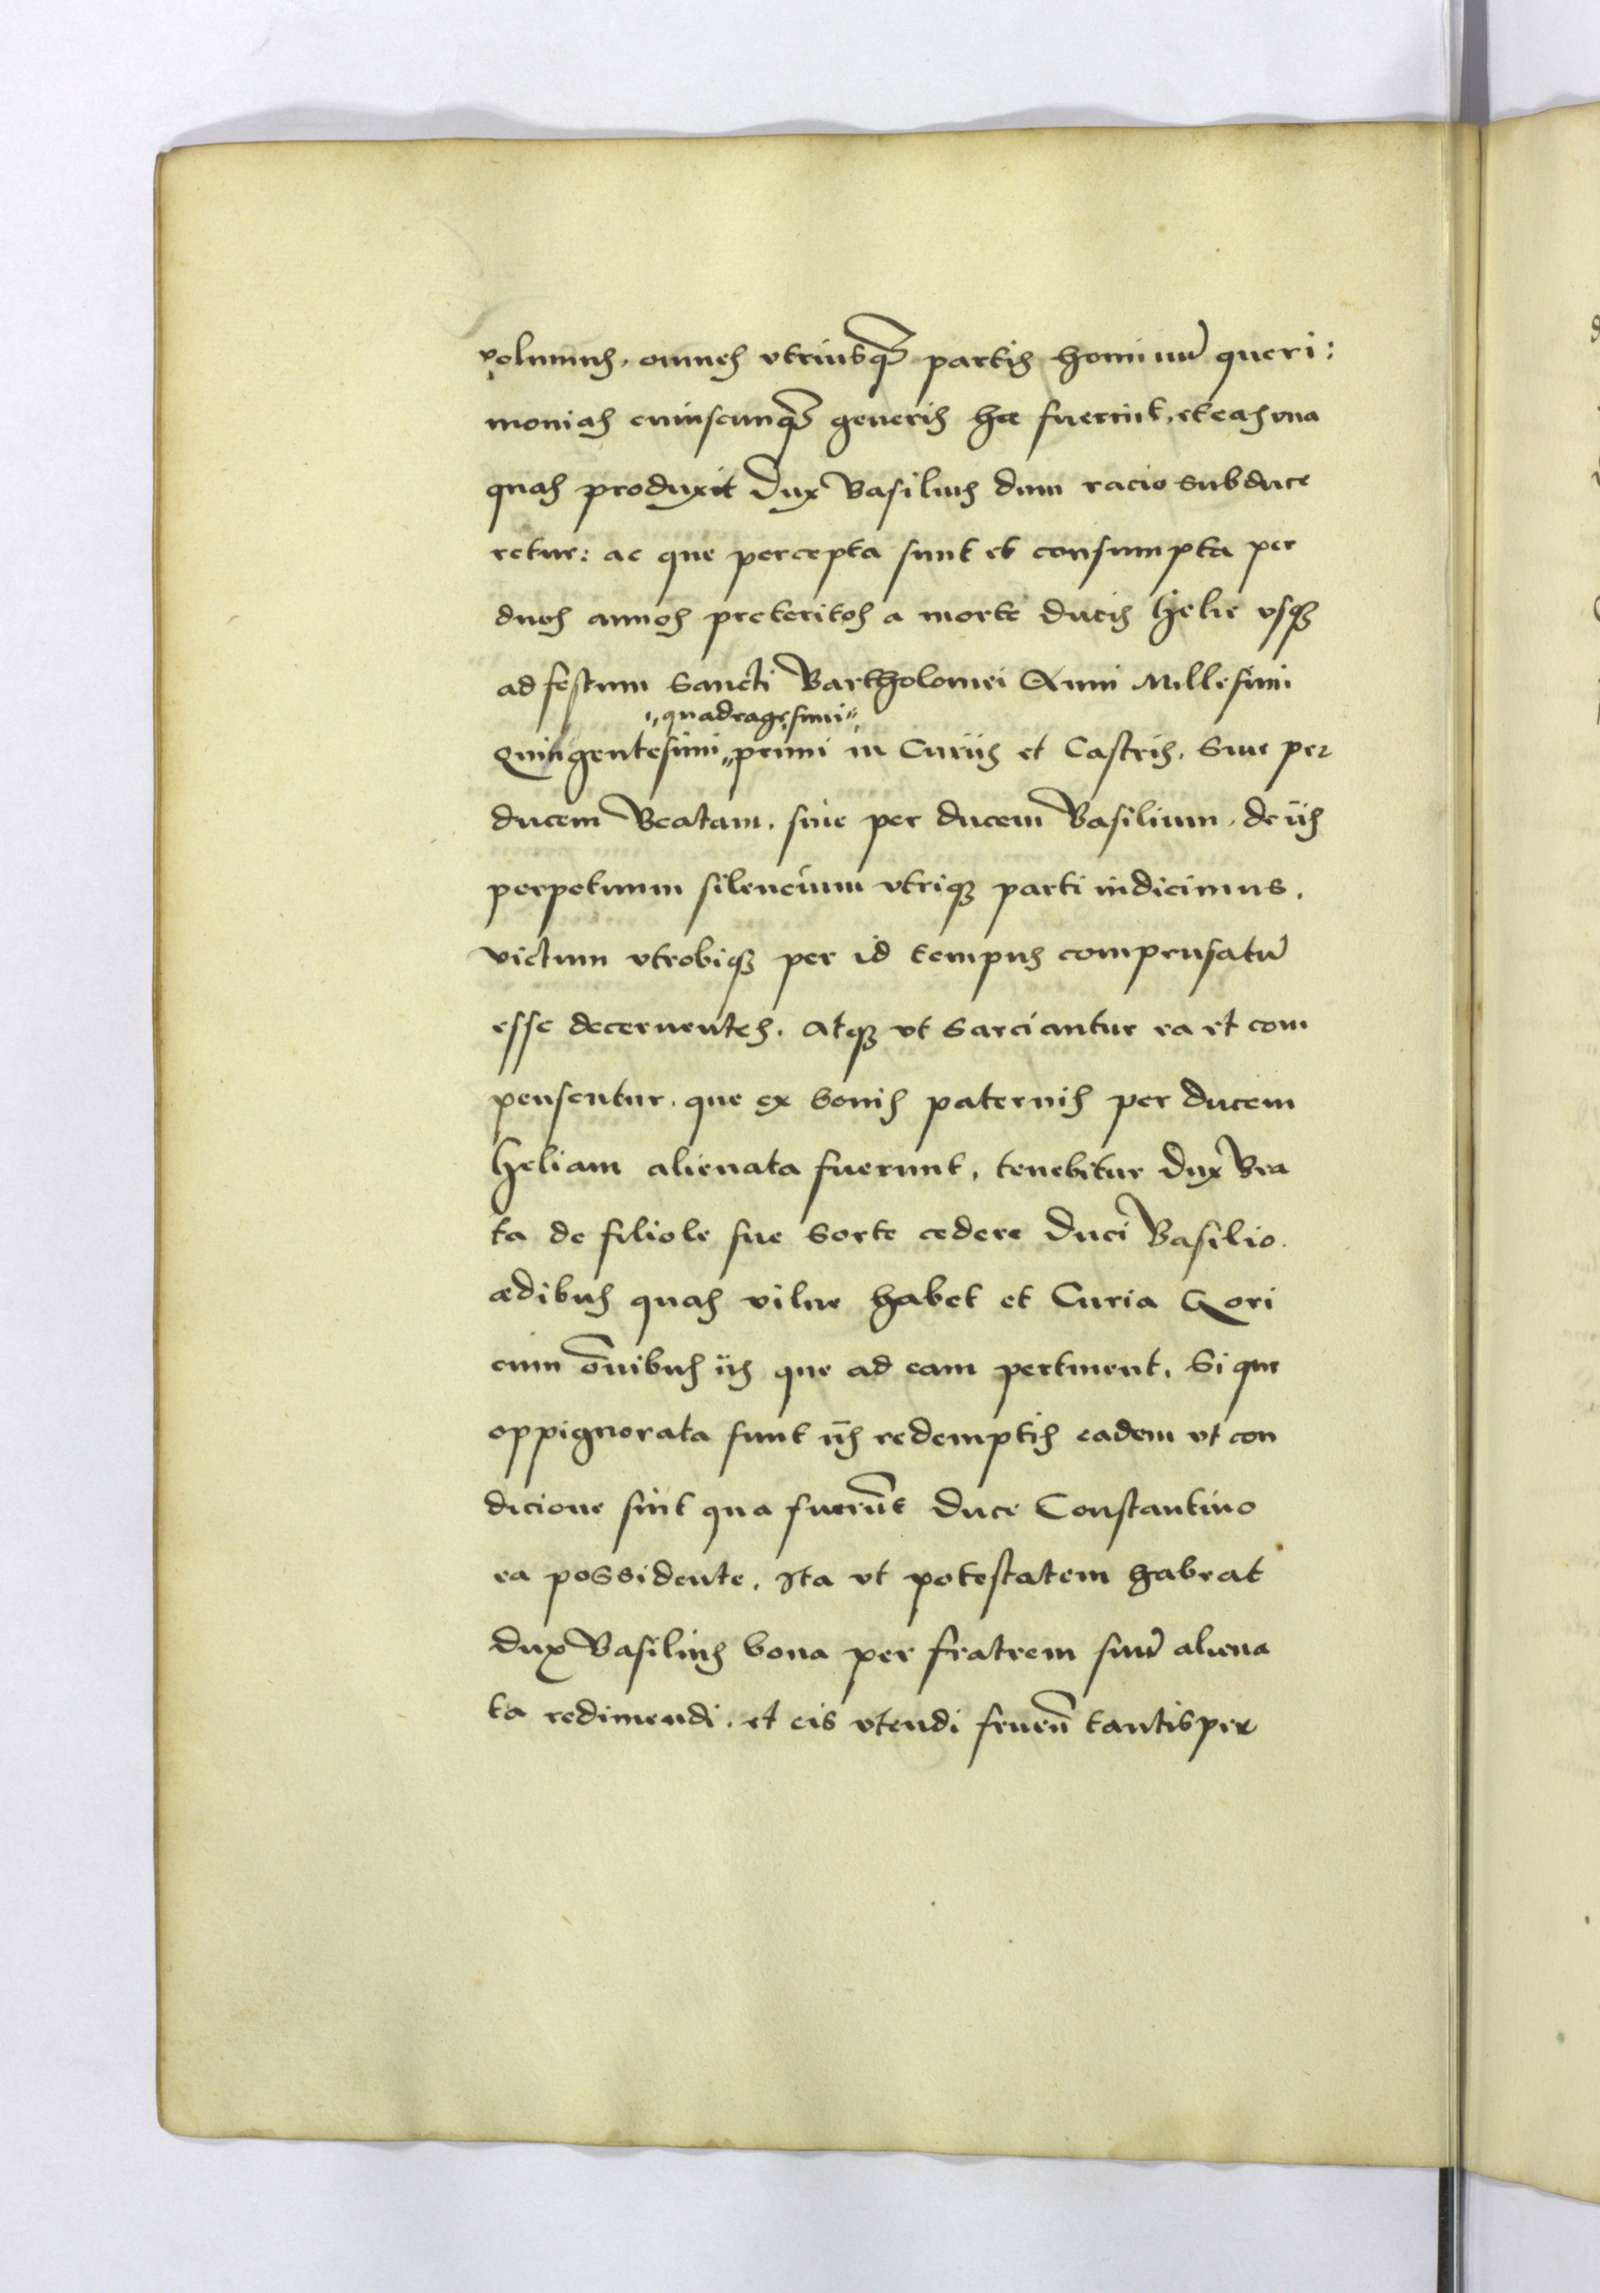 volumus, omnes vtriusq̃ partis hominũ queri:
monias cuiuscunq̃ generis hæ fuerint, et eas una
quas produxit Dux Basilius dum racio subduce
retur: ac que percepta sunt et consumpta per
duos annos preteritos a morte ducis Helie vsq3
ad festum Sancti Bartholomei Anni Millesimi
„quadragesimi“
Quingentesimi „primi in Curiis et Castris, Siue per
ducem Beatam, siue per ducem Basilium, de iis
perpetuum silencium vtriq3 parti indicimus,
victum vtrobiq3 per id tempus compensatũ
esse decernentes. Atq3 vt sarciantur ea et com
pensentur, que ex bonis paternis per ducem
Heliam alienata fuerunt, tenebitur Dux Bea
ta de filiole sue sorte cedere Duci Basilio.
ædibus quas vilne habet et Curia Gori
cum õnibus iis que ad eam pertinent, Si que
oppignorata sunt iis redemptis eadem vt con
dicione sint qua fuerũt Duce Constantino
ea possidente, Ita vt potestatem habeat
dux Basilius bona per fratrem suũ aliena
ta redimendi, et eis vtendi fruendi tantisper